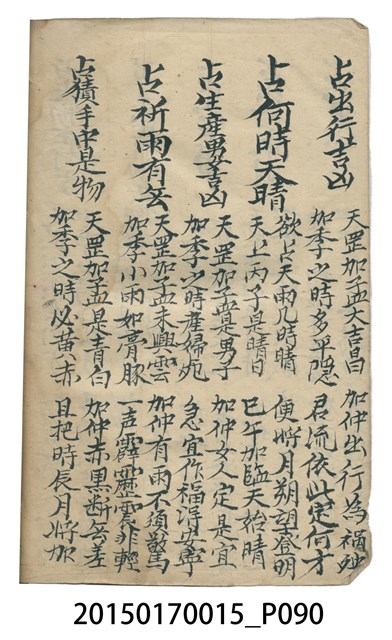 占出行吉凶
天罡加孟大吉昌 加仲出行為禍殃
加季之時多平隱 君流依此定何才
占何時天晴
欲占天雨几時晴 便將月朔望登明
天上丙子是晴日 巳午加臨天始晴
占生產男女吉凶
天罡加孟是男子 加仲女人定是宜
加季之時產婦死 急宜作福淂安寧
占祈雨有無
天罡加孟未興雲 加仲有雨不須驚
加季小雨如膏豚 一声霹靂震非輕
占猜手中是物
天罡加孟是青白 加仲赤黑断無差
加季之時必黃赤 且把時辰月將加
20150170015_P090